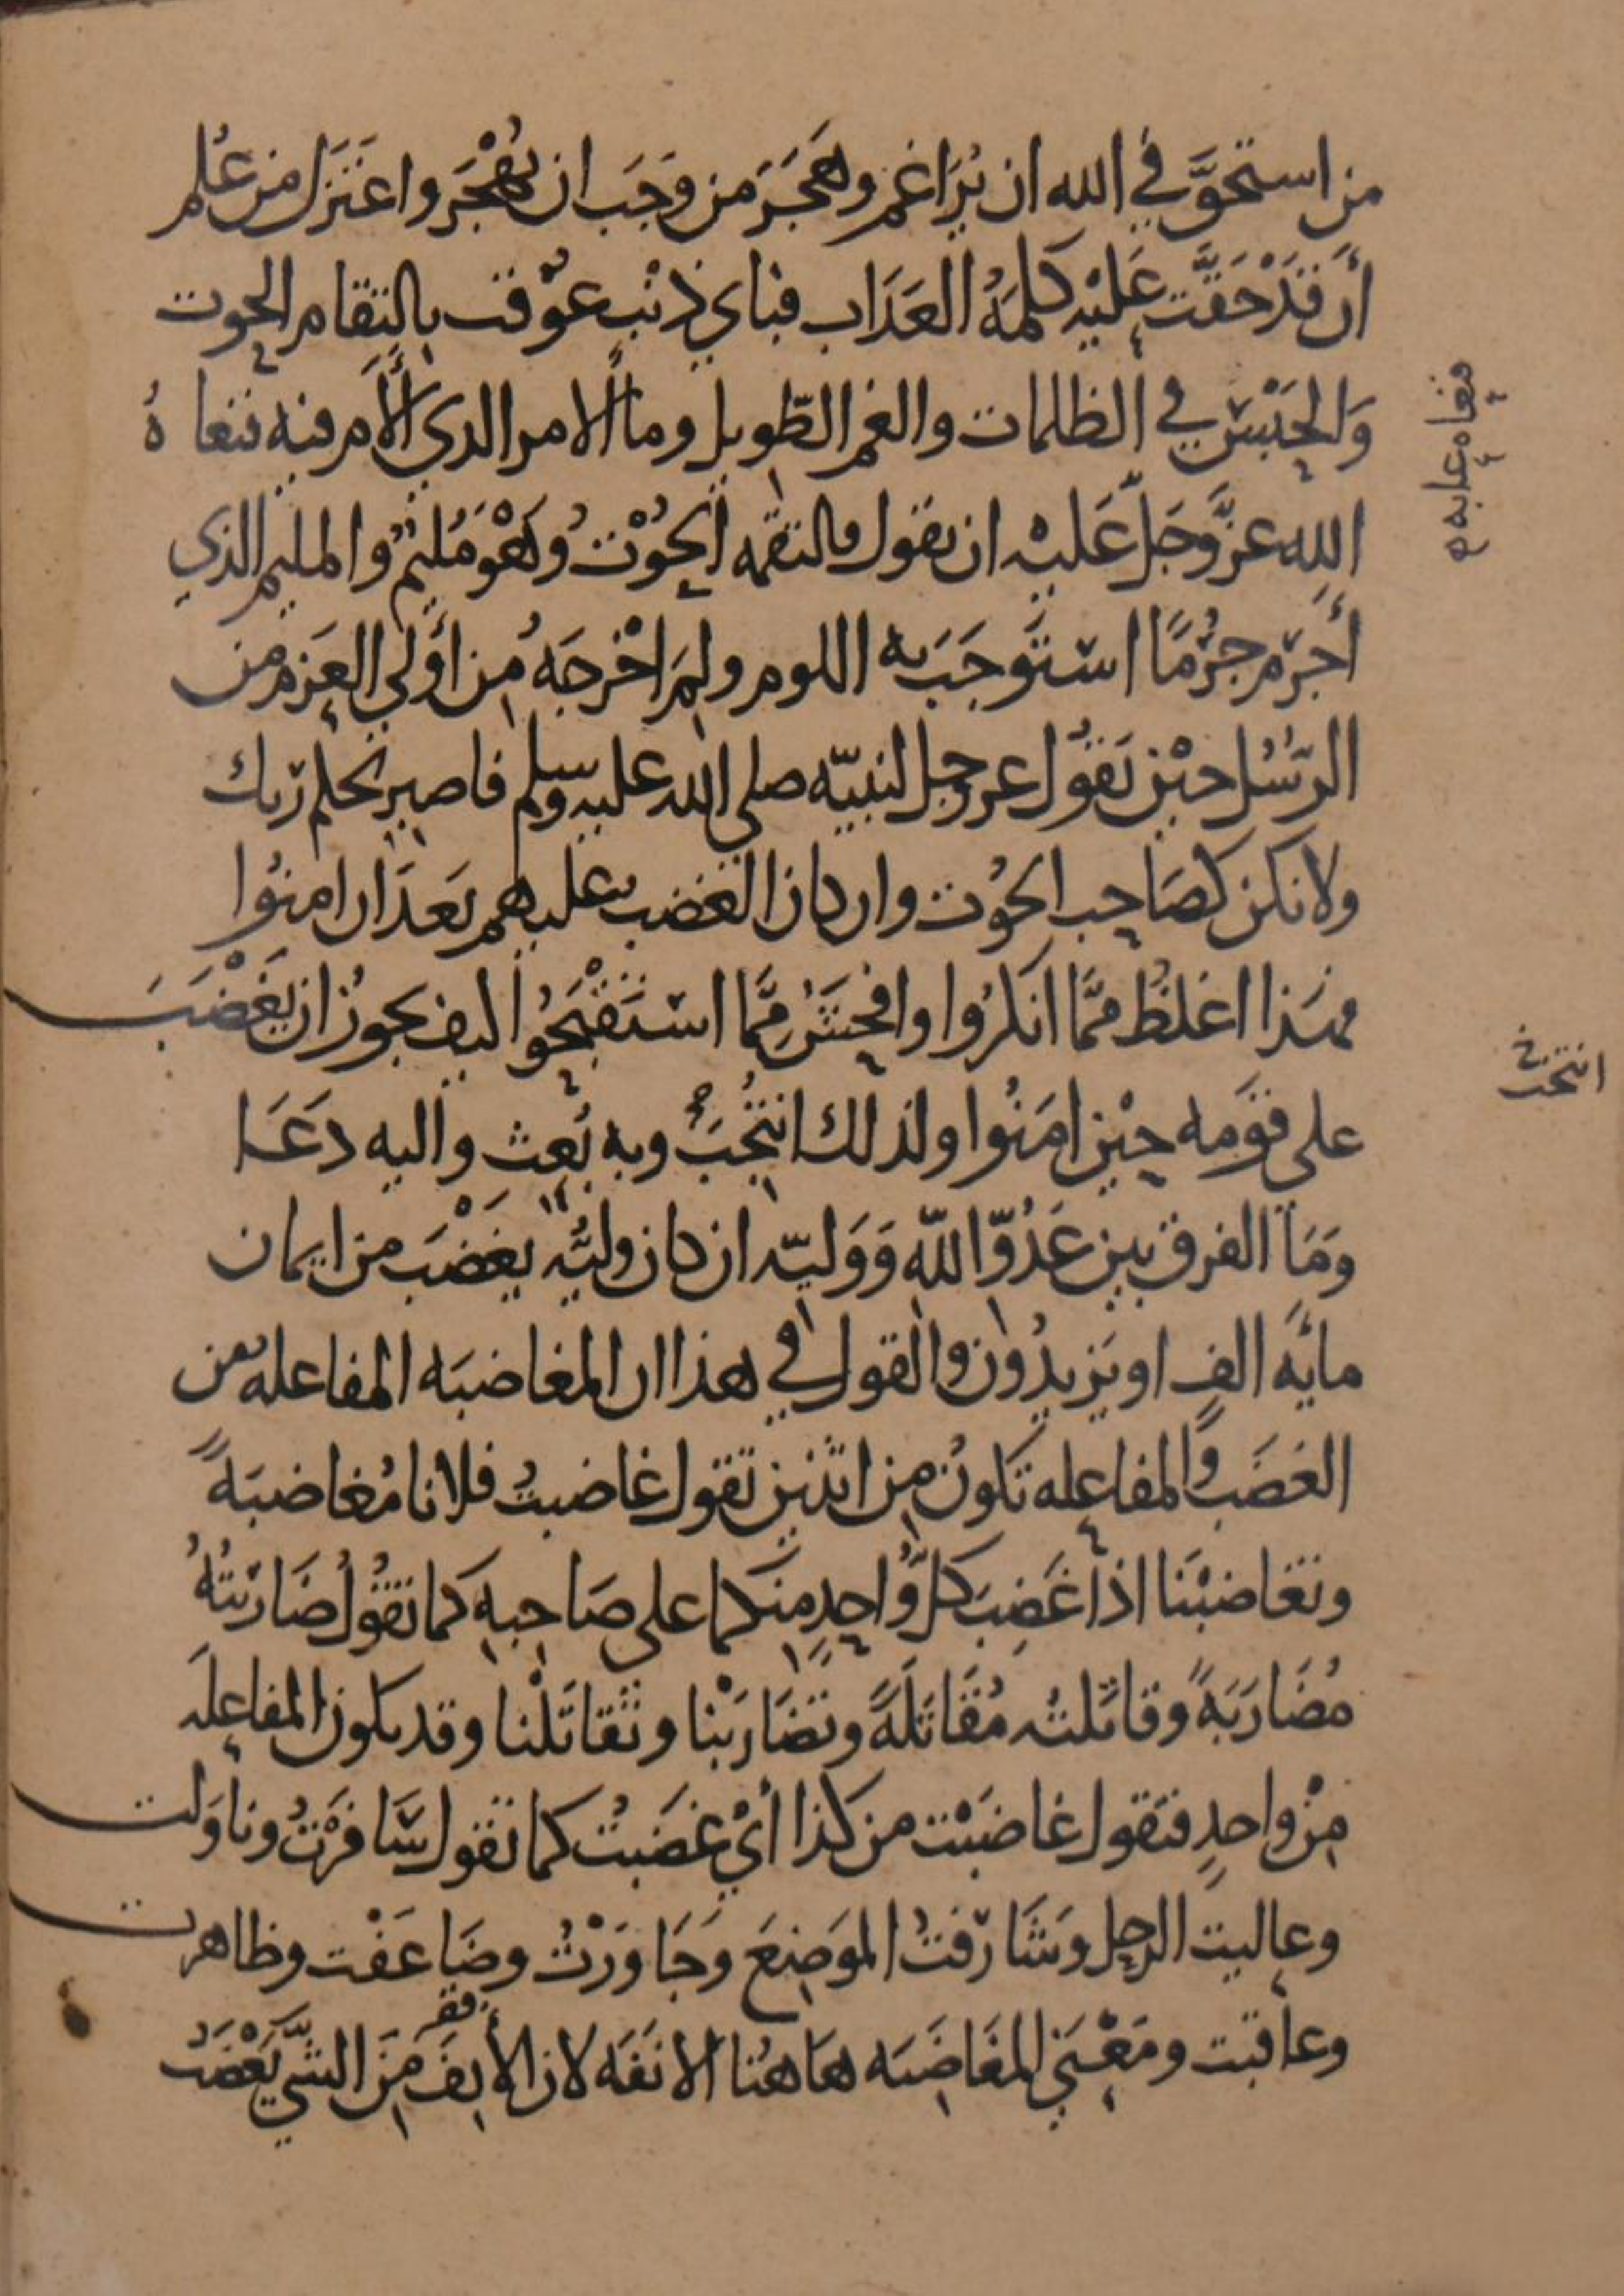 من استحق في الله ان يُرَاغم وهَجَرَ من وَجَب ان يُهْجَر واعتَزَل من عُلم
أن قد حَقَّت عَليْه كلمةُ العَذَاب فباي ذنْب عوْقب بالتقام الحوت
وَالحَبْس في الظلمات والغم الطّويل وما الامر الذي ألام فيه فنعاهُ
الله عزَّ وَجَلّ عَليْه ان يقول فالتقمه الحُوْتُ وَهْوَ مُليْمٌ والمليم الذي
أجرَم جُرْمًا استَوجَبَ به اللوم ولِمَ اخْرجَهُ مِن أولي العَزم من
الرّسُل حيْن يَقوُل عز وجل لنبيّه صلى الله عليه وسلم فاصبر لحكم ربك
ولا تكن كصَاحِب الحُوت وان كان الغضب عليهم بَعدَ ان امنوُا
فهَذا اغلظُ ممَّا انكرُوا وافحَشُ مِمَّا استَقْبَحُوا كيف يجوزُ ان يَغْضَبَ
على قوَمه حِيْن امَنُوا ولذلك انتُخِبَ وبه بُعِث واليه دَعَا
وَمَا الفرق بين عَدُوّ اللّٰه وَوَليّه ان كان وليُّه يغضَب من ايمان
مائَة الفٍ او يَزيدُون والقول في هذا ان المغاضبَة المفاعله من
الغضَب والمفاعِله تكونُ مِن اثنين تقول غاضبتُ فلانا مُغاضبَةً
وتغاضبْنا اذا غَضِبَ كلُّ واحِدٍ منكما على صَاحِبِهِ كما تقُوْلُ ضَارَبتُهُ
مُضَارَبَةً وقاتَلتُه مُقَاتَلَةً وتضَارَبْنا وتَقاتَلْنا وقد تكون المفاعِلَه
مِنْ واحدٍ فتقول غاضَبْت من كذا أيْ غضَبتُ كما تقول سَافَرْتُ وناوَلت
وعاليت الرحل وَشَارَفتُ الموَضِعَ وَجَاوَرْتُ وضَاعَفْت وظاهرت
وعاقبت ومَعْنَى المغَاضَبَه هَاهُنا الانفَه لان الأنِفَ مِنَ الشَّي يَغْضَبُ
فقر
فنعاه عابه به
انتجب خ